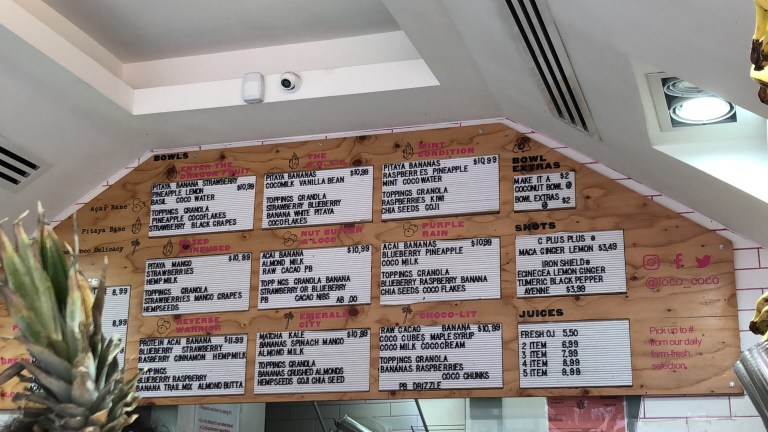 BOWLS
ENTER THE
DRAGON FRUIT
PITAYA BANANA STRAWBERRY
PINEAPPLE LEMON $10,99
BASIL COCO WATER
TOPPINGS GRANOLA
PINEAPPLE COCOFLAKES
STRAWBERRY BLACK GRAPES
THE
PITAYA BANANAS $10,99
COCOMILK VANILLA BEAN
TOPPINGS GRANOLA
STRAWBERRY OR BLUEBERRY
BANANA WHITE PITAYA
COCOFLAKES
MINT
CONDITION
PITAYA BANANAS $10,99
RASPBERRIES PINEAPPLE
MINT COCO WATER
TOPPINGS GRANOLA
RASPBERRIES KIWI
CHIA SEEDS GOJI
BOWL
EXTRAS
MAKE IT A $2
COCONUT BOWL @
BOWL EXTRAS $2
AÇAÍ BASE
PITAYA BASE
COCO DELICACY
PITAYA MANGO $10,99
STRAWBERRIES
HEMP MILK
TOPPINGS GRANOLA
STRAWBERRIES MANGO GRAPES
HEMPSEEDS
NUT BUTTER
A'LOCO
ACAI BANANA $10,99
ALMOND MILK
RAW CACAO PB
TOPPINGS GRANOLA BANANA
STRAWBERRY OR BLUEBERRY
PB CACAO NIBS AB .00
PURPLE
RAIN
ACAI BANANAS $10,99
BLUEBERRY PINEAPPLE
TOPPINGS GRANOLA
BLUEBERRY RASPBERRY BANANA
CHIA SEEDS COCO FLAKES
SHOTS
C PLUS PLUS @
MACA GINGER LEMON $3,49
IRON SHIELD@
ECINECEA LEMON GINGER
TUMERIC BLACK PEPPER
AYENNE $3,99
@loco_coco
8,99
8,99
REVERSE
WARRIOR
PROTEIN ACAI BANANA $11,99
BLUEBERRY STRAWBERRY
RASPBERRY CINNAMON HEMP MILK
TOPPINGS
BLUEBERRY RASPBERRY
BANANA TRAIL MIX ALMOND BUTTA
EMERALD
CITY
MATCHA KALE $10,99
BANANAS SPINACH MANGO
ALMOND MILK
TOPPINGS GRANOLA
BANANAS CRUSHED ALMONDS
HEMPSEEDS GOJI CHIA SEED
CHOCO-LIT
RAW CACAO BANANA $10,99
COCO CUBES MAPLE SYRUP
COCO MILK COCO CREAM
TOPPINGS GRANOLA
BANANAS RASPBERRIES
COCO CHUNKS
PB DRIZZLE
JUICES
FRESH OJ 5,50
2 ITEM 6,99
3 ITEM 7,99
4 ITEM 8,99
5 ITEM 9,99
Pick up to #
from our daily
farm-fresh
selection.